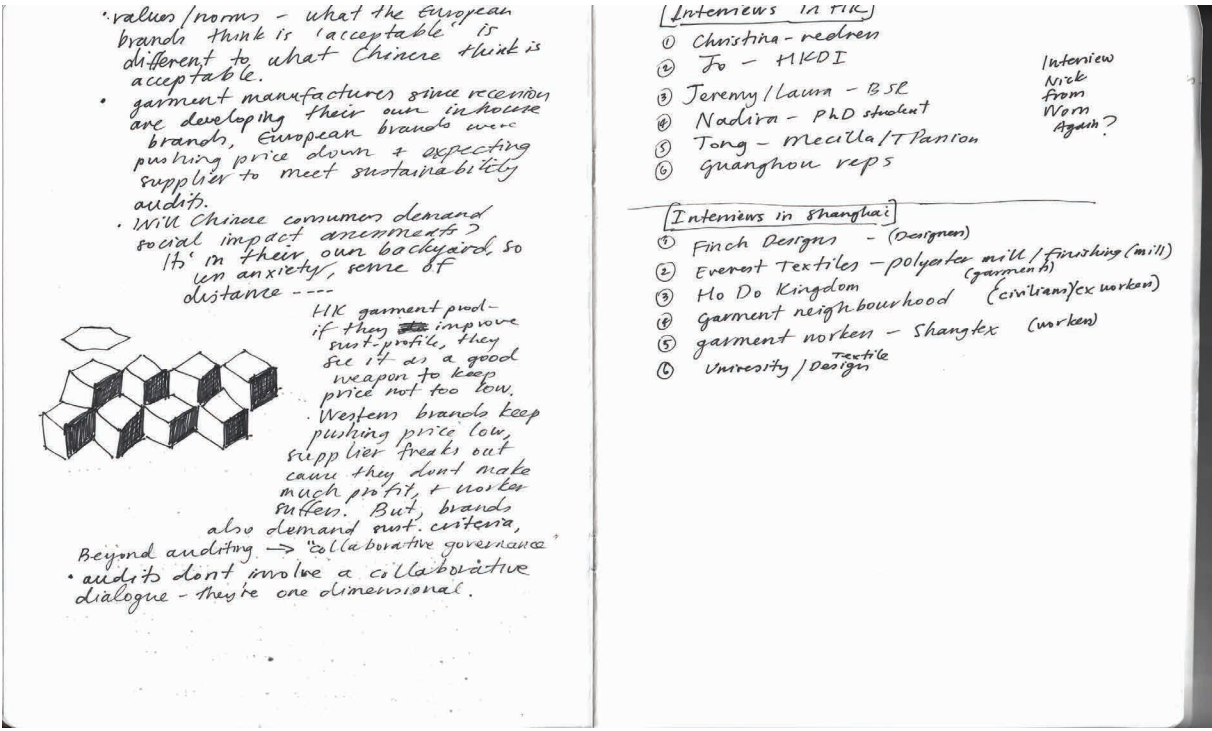 • values/norms - what the European
brands think is 'acceptable' is
different to what Chinese think is
acceptable.
• garment manufactures since recession
are developing their own inhouse
brands, European brands were
pushing price down + expecting
supplier to meet sustainability
audits.
• Will Chinese consumers demand
social impact assessments?
It's in their own backyard, so
less anxiety, sense of
distance ----
HK garment prod-
if they improve
sust-profile, they
see it as a good
weapon to keep
price not too low.
• Western brands keep
pushing price low,
supplier freaks out
cause they dont make
much profit, + worker
suffers. But, brands
also demand sust. criteria,
Beyond auditing → "collaborative governance"
• audits dont involve a collaborative
dialogue - they're one dimensional.
Interviews in HK
① Christina - redress
② Jo - HKDI
③ Jeremy/Laura - BSR
④ Nadira - PhD student
⑤ Tong - Mecilla/TPanion
⑥ Guanghou reps
Interview
Nick
from
Worn
Again?
Interviews in Shanghai
① Finch Designs - (Designers)
② Everest Textiles - polyester mill / finishing (mill)
③ Ho Do Kingdom (garments)
④ garment neighbourhood (civilians/ex workers)
⑤ garment workers - Shangtex (workers)
⑥ University / Textile Design